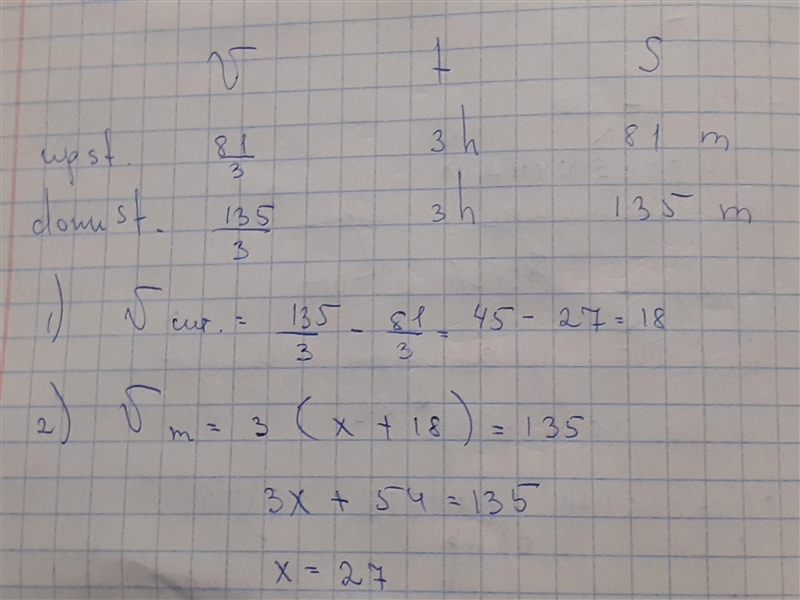 V t S
upst. 81/3 3 h 81 m
downst. 135/3 3 h 135 m
1) V cur. = 135/3 - 81/3 = 45 - 27 = 18
2) V m = 3 (x + 18) = 135
3x + 54 = 135
x = 27